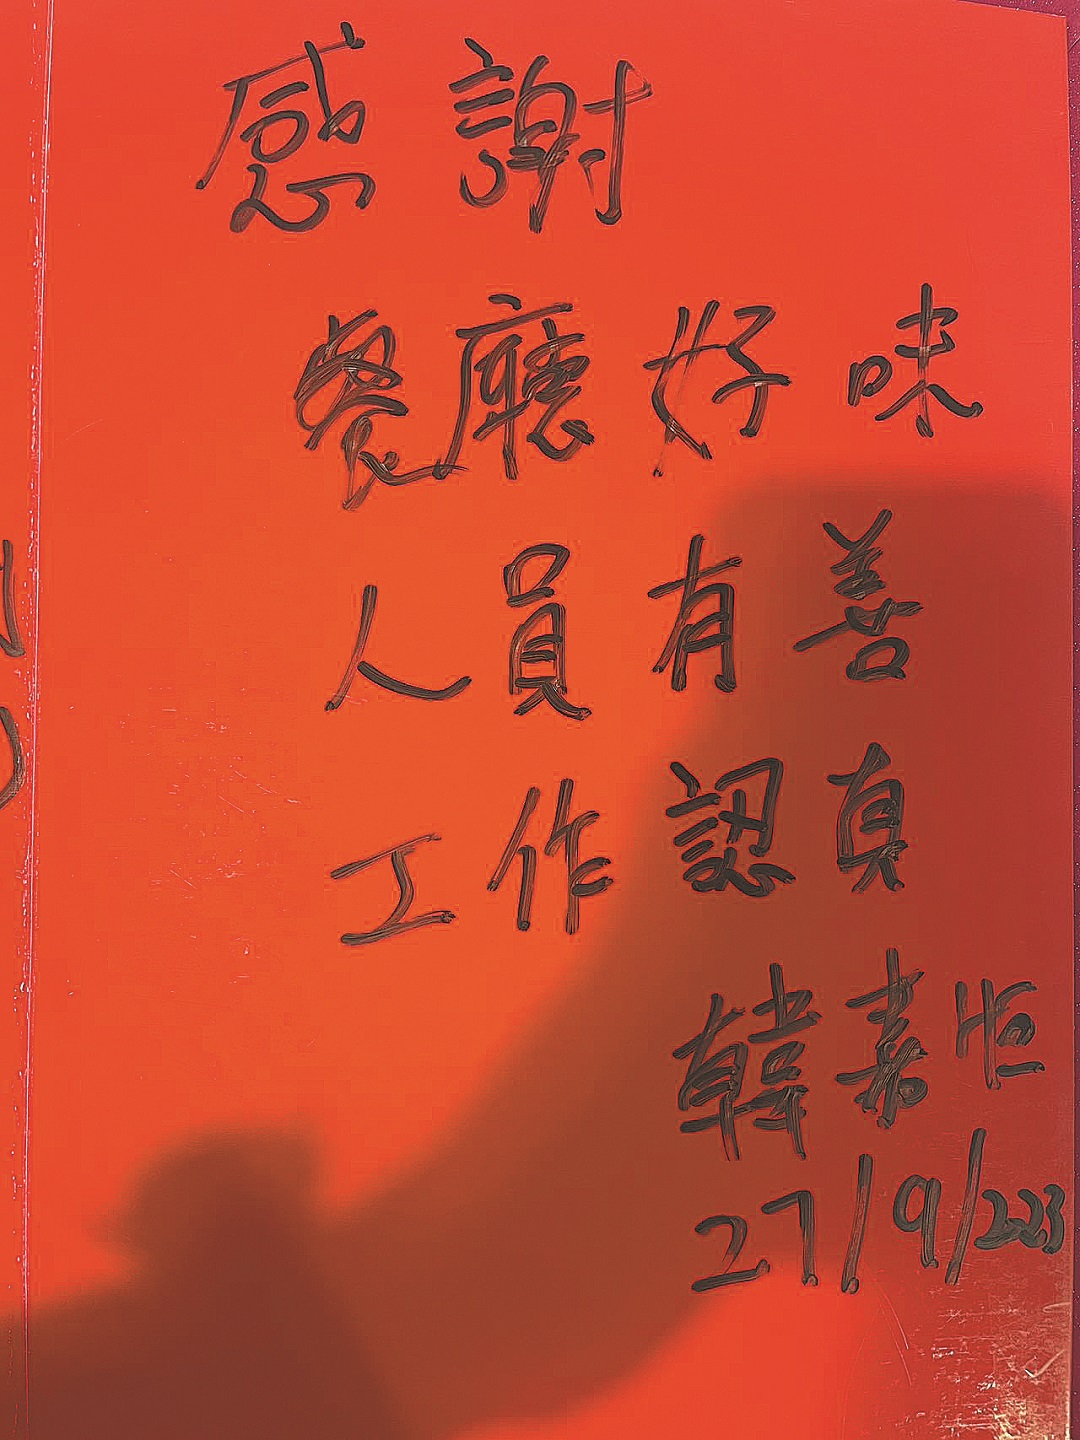 感謝
餐廳好味
人員有善
工作認真
韓嘉恒
27/9/223